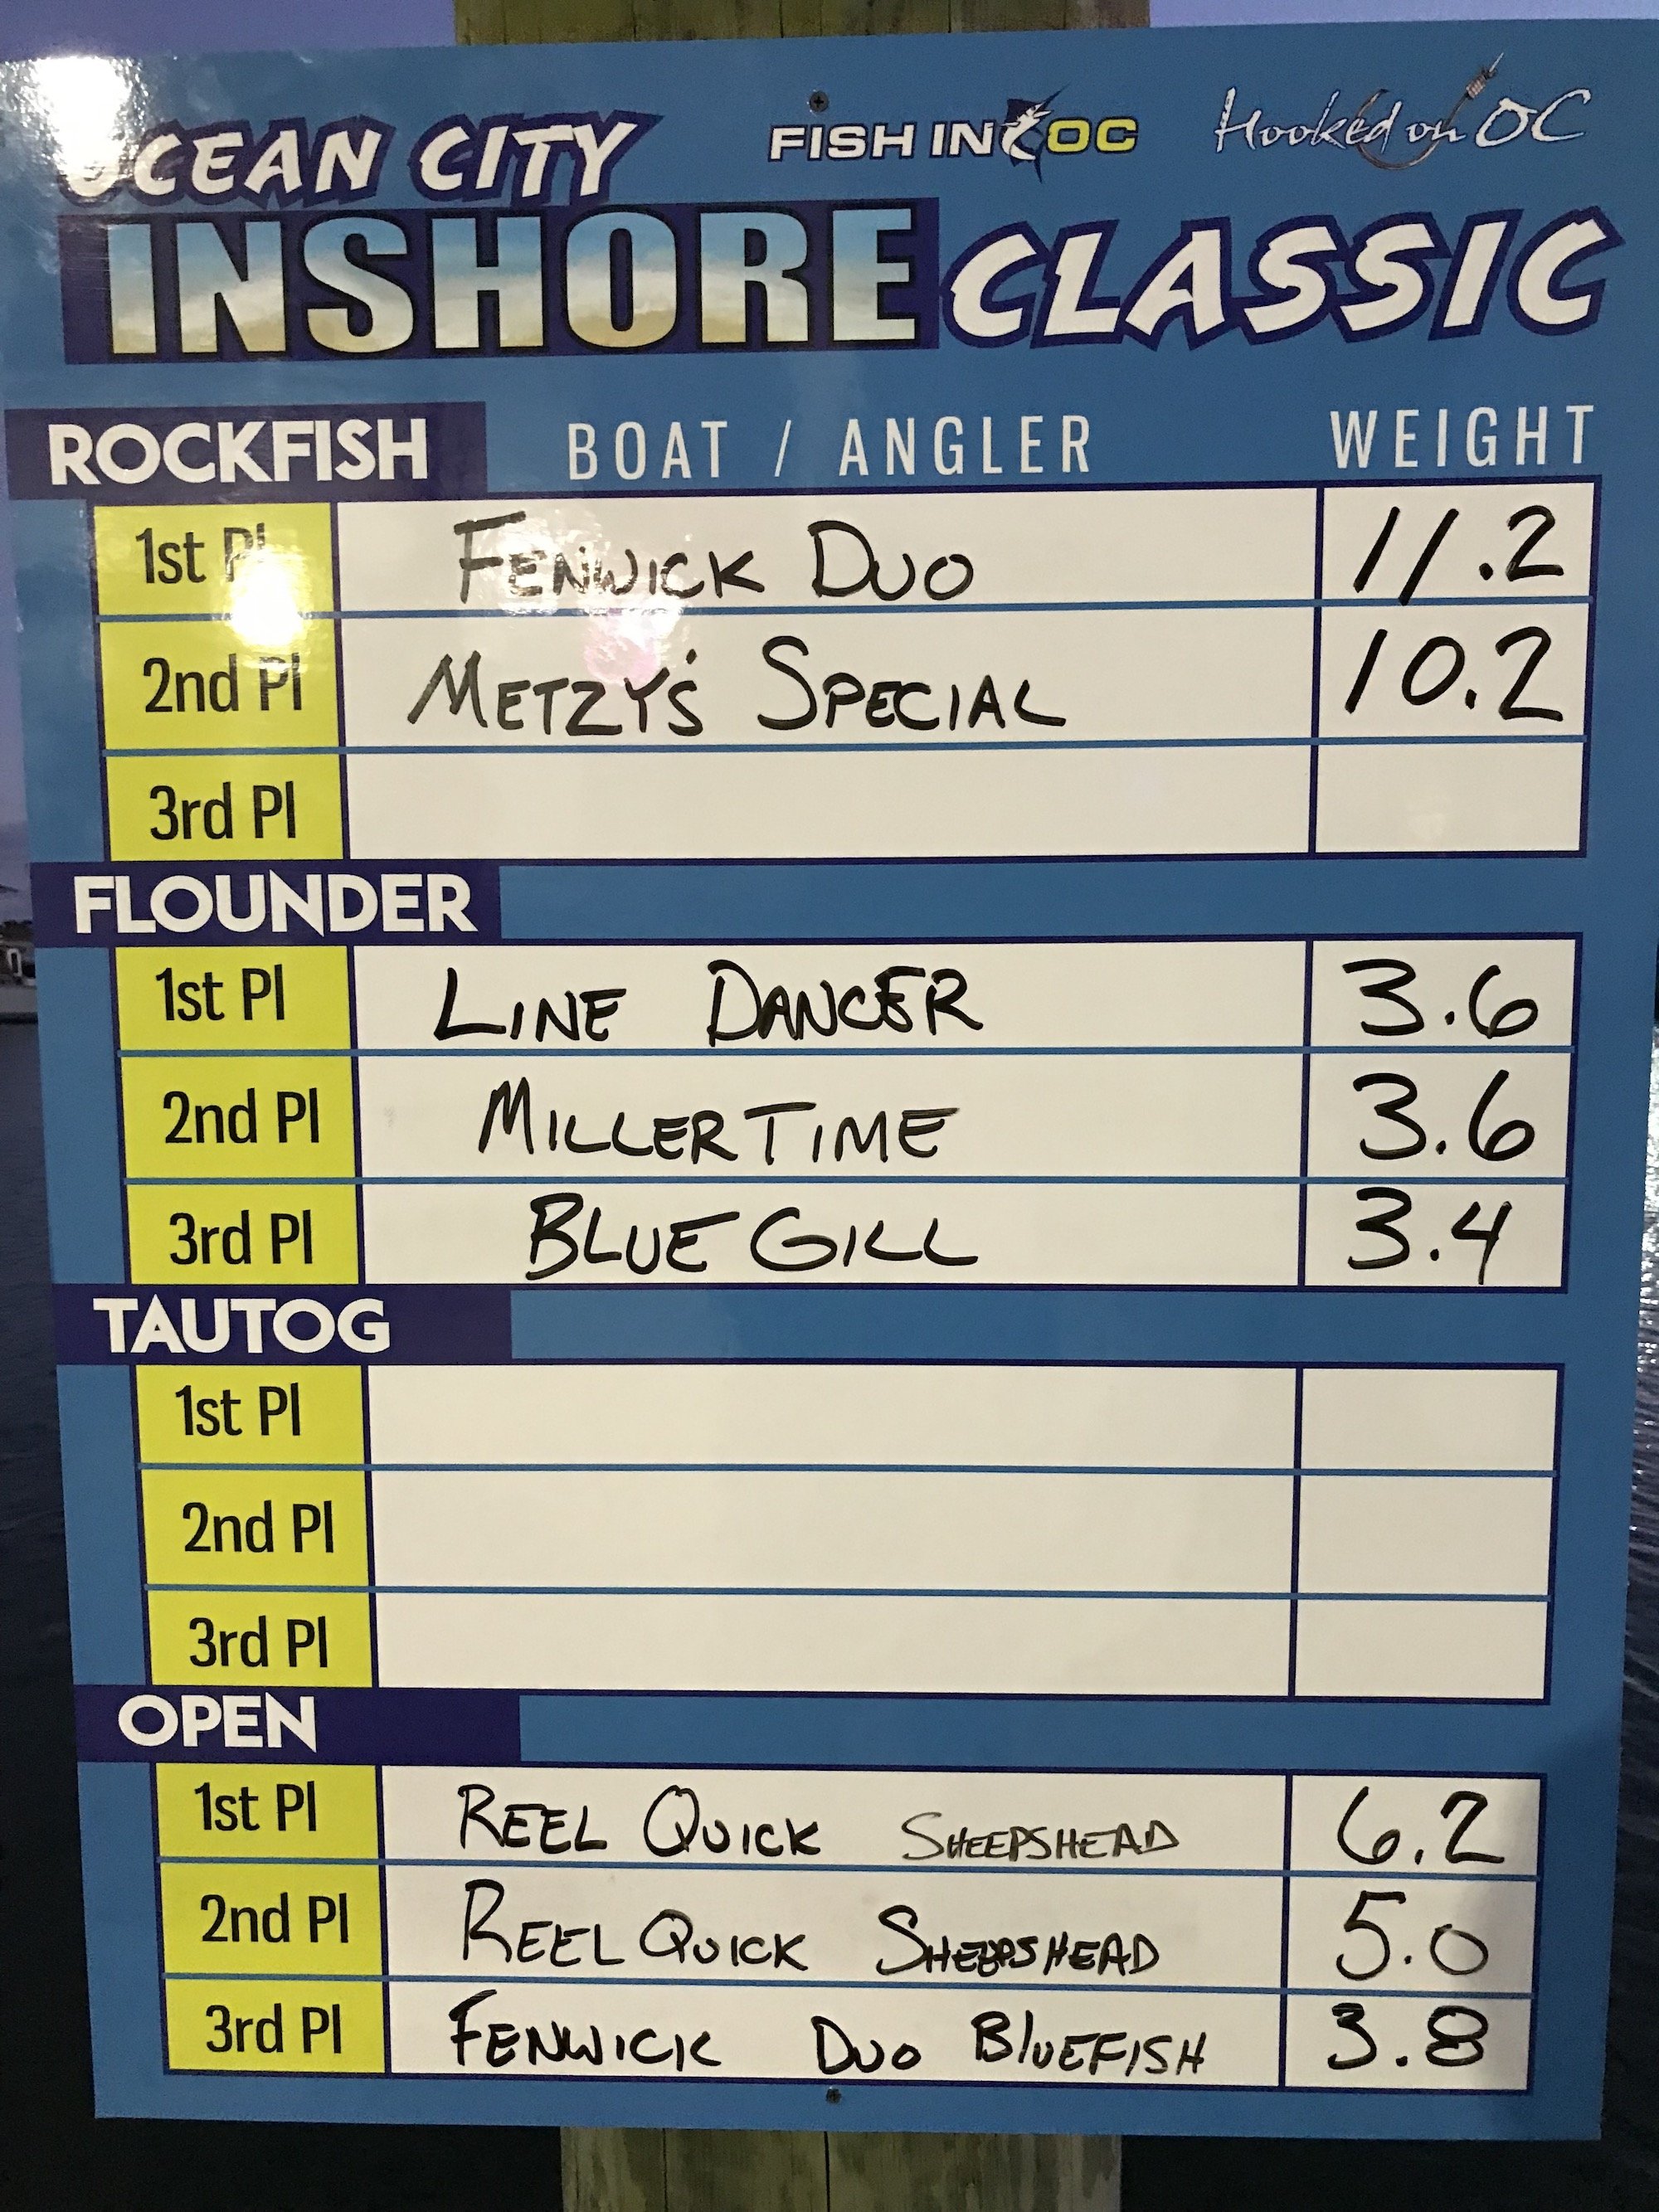 OCEAN CITY FISH IN OC Hooked on OC
INSHORE CLASSIC
ROCKFISH BOAT / ANGLER WEIGHT
1st Pl FENWICK DUO 11.2
2nd Pl METZY'S SPECIAL 10.2
3rd Pl
FLOUNDER
1st Pl LINE DANCER 3.6
2nd Pl MILLER TIME 3.6
3rd Pl BLUE GILL 3.4
TAUTOG
1st Pl
2nd Pl
3rd Pl
OPEN
1st Pl REEL QUICK SHEEPSHEAD 6.2
2nd Pl REEL QUICK SHEEPSHEAD 5.0
3rd Pl FENWICK DUO BLUEFISH 3.8